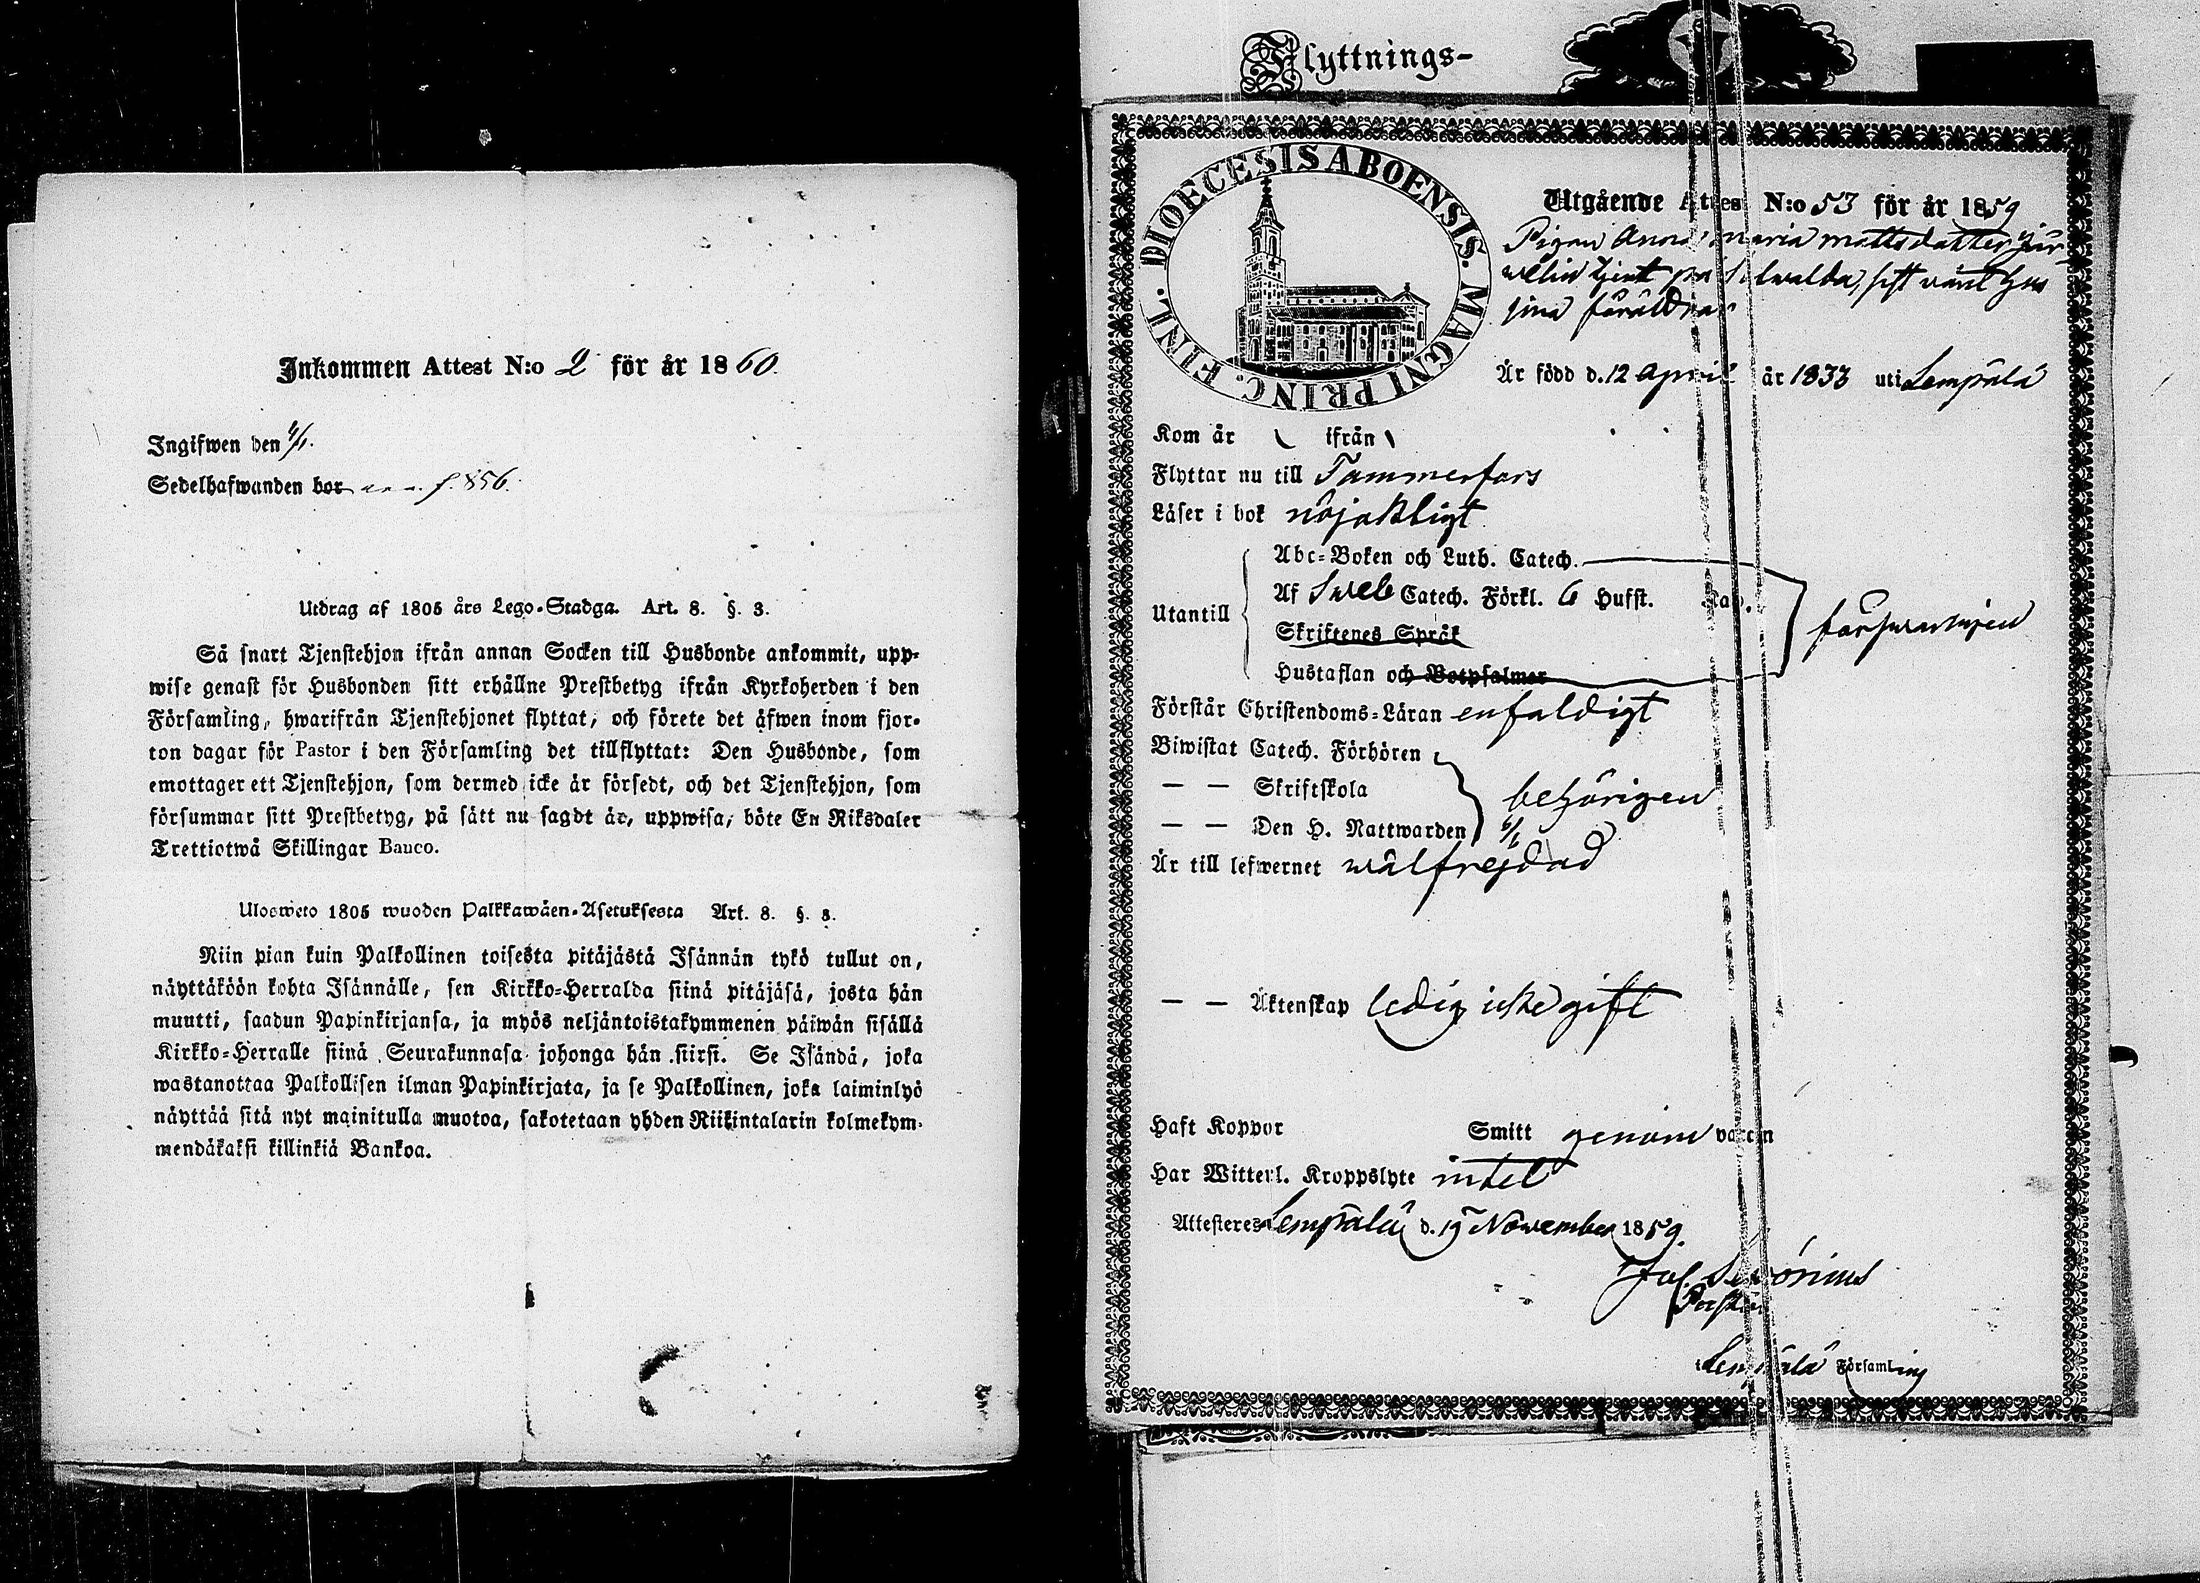 Inkommen Attest N:o 2 för år 1860.
Ingifwen den 4/1.
Sedelhafwanden bor f. 856.
Utdrag af 1805 års Lego-Stadga. Art. 8. §. 3.
Så snart Tjenstehjon ifrån annan Socken till Husbonde ankommit, upp-
wise genast för Husbonden sitt erhållne Prestbetyg ifrån Kyrkoherden i den
Församling, hwarifrån Tjenstehjonet flyttat, och förete det äfwen inom fjor-
ton dagar för Pastor i den Församling det tillflyttat: Den Husbonde, som
emottager ett Tjenstehjon, som dermed icke är försedt, och det Tjenstehjon, som
försummar sitt Prestbetyg, på sätt nu sagdt är, uppwisa, böte En Riksdaler
Trettiotwå Skillingar Banco.
Ulosweto 1805 wuoden Palkkawäen-Asetuksesta Art. 8. §. 3.
Niin pian kuin Palkollinen toisesta pitäjästä Isännän tykö tullut on,
näyttäköön kohta Isännälle, sen Kirkko-Herralda siinä pitäjäsä, josta hän
muutti, saadun Papinkirjansa, ja myös neljäntoistakymmenen päiwän sisällä
Kirkko-Herralle siinä Seurakunnasa johonga hän siirsi. Se Isändä, joka
wastanottaa Palkollisen ilman Papinkirjata, ja se Palkollinen, joka laiminlyö
näyttää sitä nyt mainitulla muotoa, sakotetaan yhden Riikintalarin kolmekym-
mendäkaksi killinkiä Bankoa.
Flyttnings-
DIOECESIS ABOENSIS. MAGNI PRINC. FINL.
Utgående Attest N:o 53 för år 1859
Pigan Anna Maria mattsdotter jär
welin tjent på sist varit hus
sina föräldrar
Är född d. 12 April år 1833 uti Lempälä
Kom år ifrån
Flyttar nu till Tammerfors
Läser i bok nöjaktligt
Utantill
Abc-Boken och Luth. Catech.
Af Sveb Catech. Förkl. 6 Hufst. Cap.
Skriftenes Språk
Hustaflan och Botpsalmer
försvarligen
Förstår Christendoms-Läran enfaldigt
Biwistat Catech. Förhören
— — Skriftskola
behörigen
— — Den H. Nattwarden 6/6
Är till lefwernet wälfrejdad
— — Äktenskap ledig icke gift
Haft Koppor Smitt genom vaccin
Har Witterl. Kroppslyte intet
Attesteres Lempälä d. 19 November 1859.
Jos. Servónius
Pastor
i Lempälä Församling